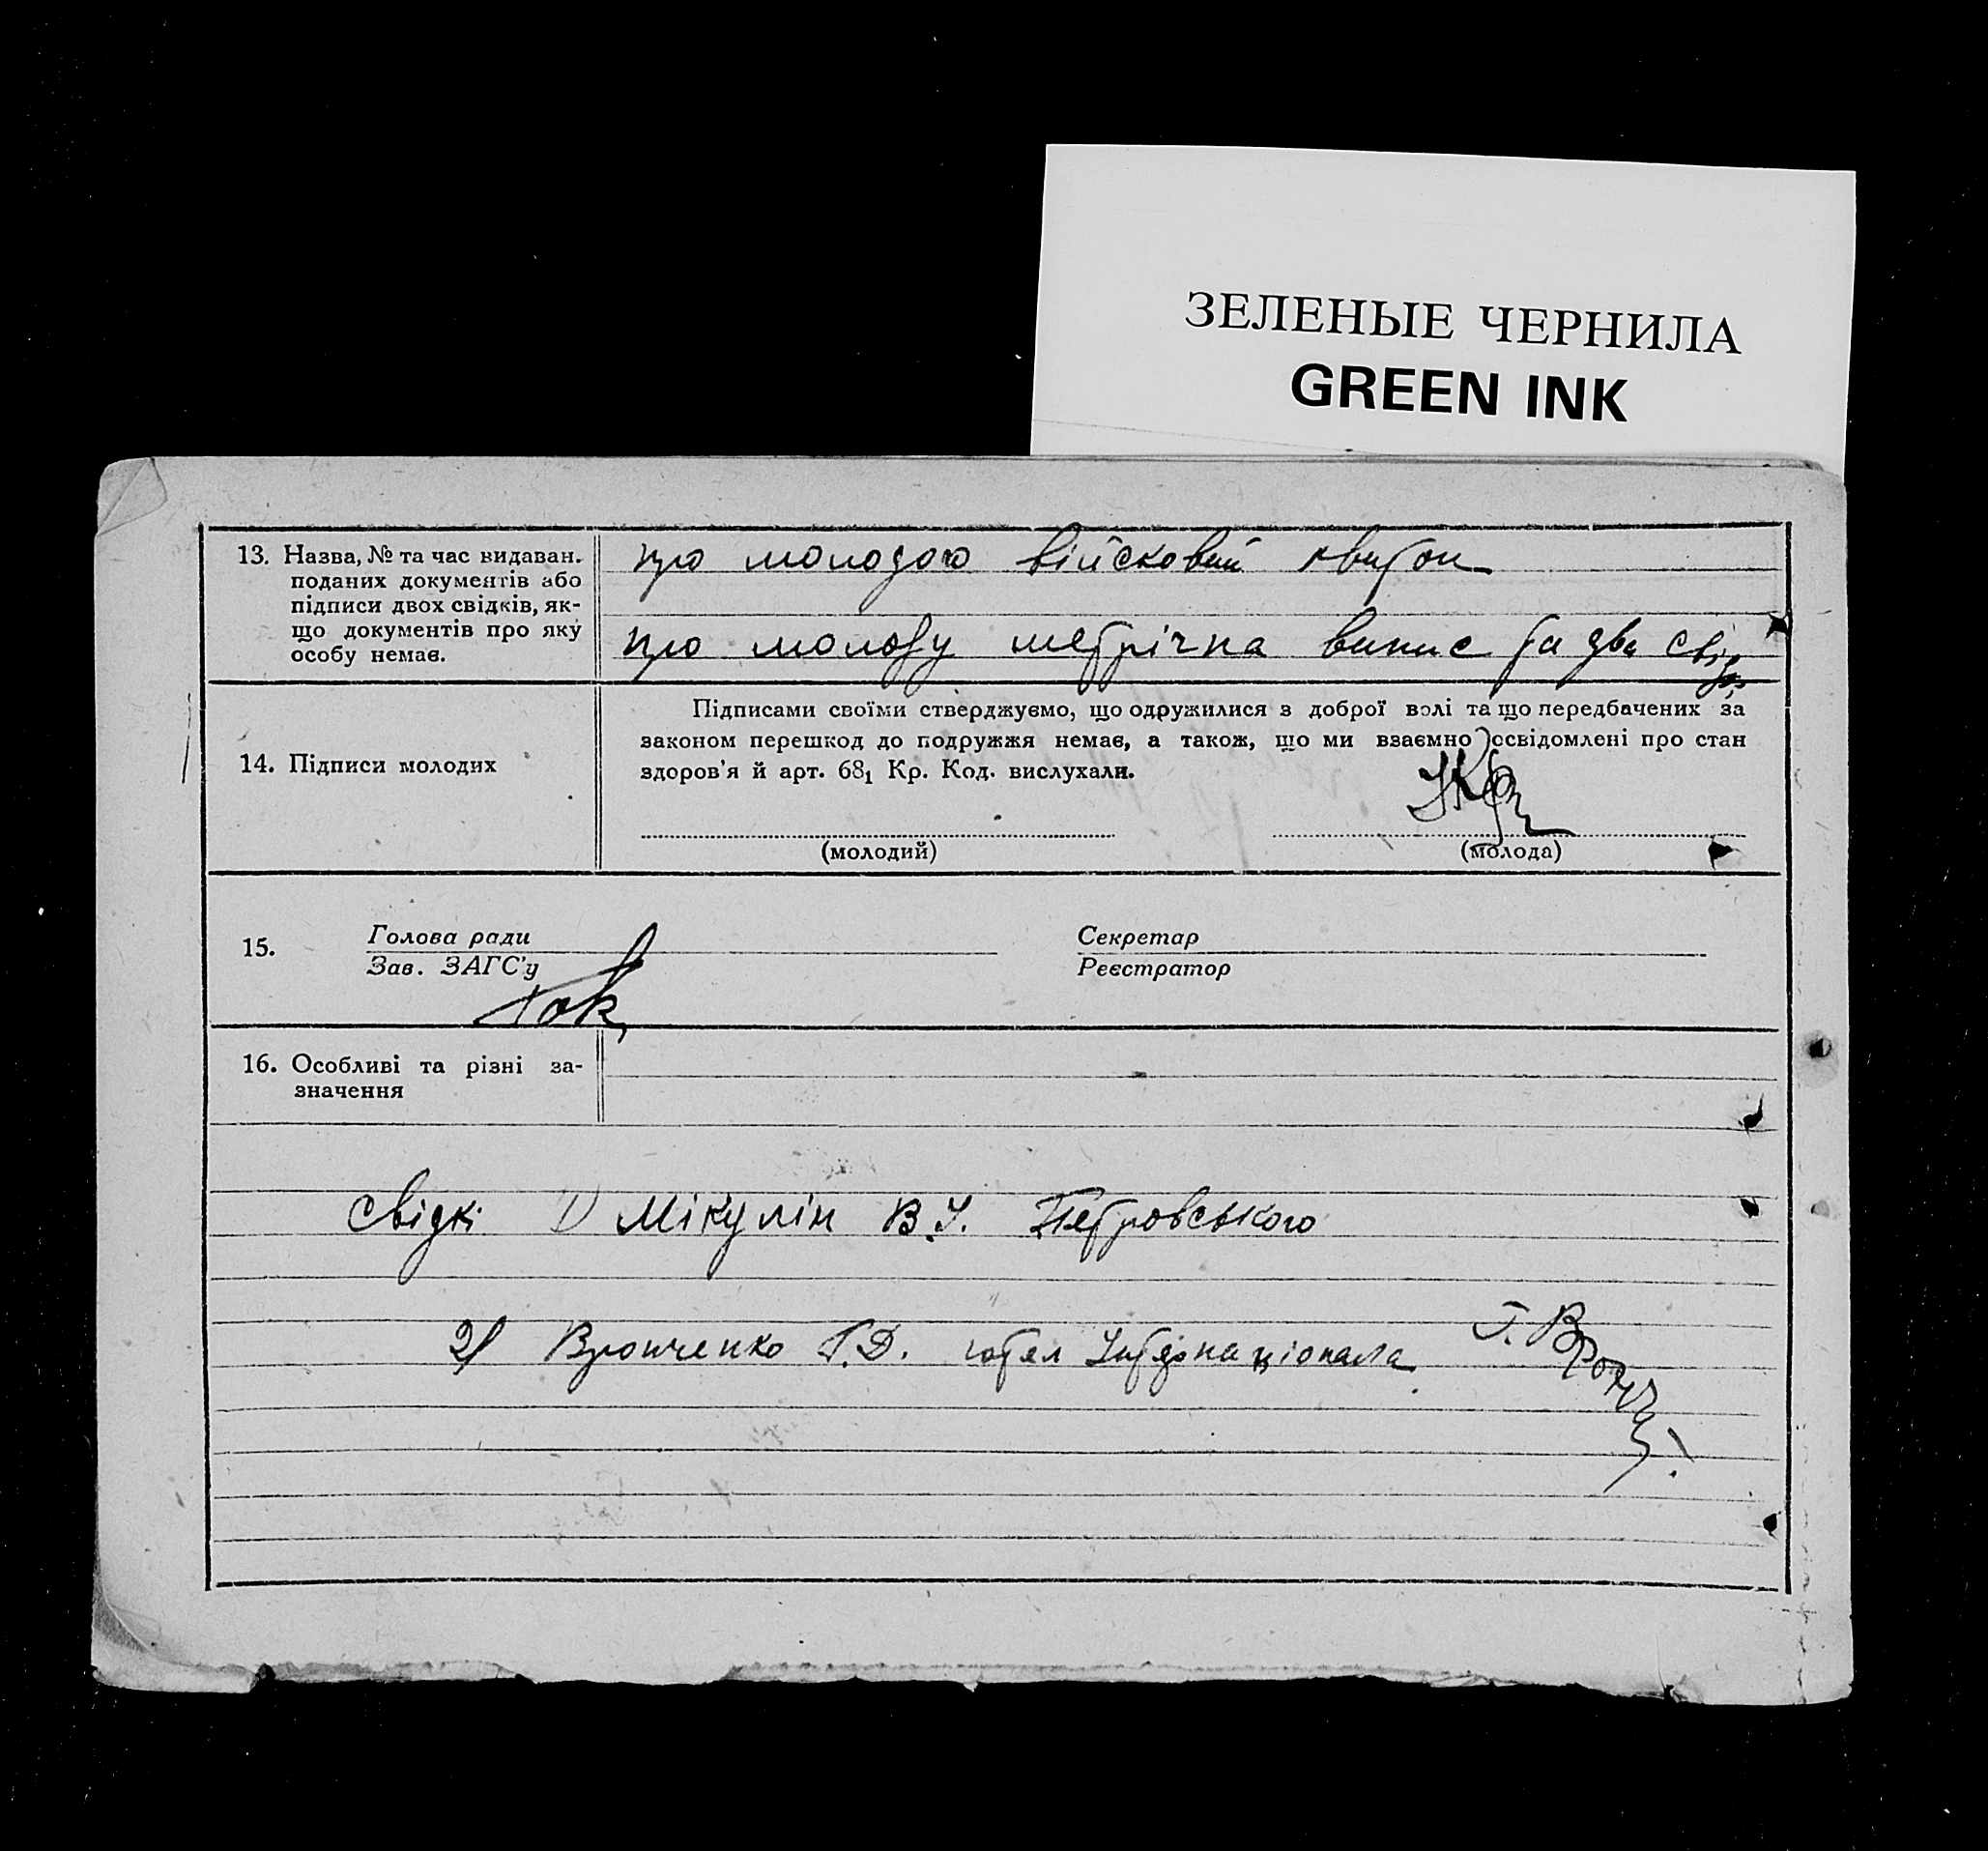 ЗЕЛЕНЫЕ ЧЕРНИЛА
GREEN INK
13. Назва, № та час видаван.
поданих документів або
підписи двох свідків, як-
що документів про яку
особу немає.
про молодого війсковий квиток
про молоду метрічна випис та два свідк
14. Підписи молодих
Підписами своїми стверджуємо, що одружилися з доброї волі та що передбачених за
законом перешкод до подружжя немає, а також, що ми взаємно освідомлені про стан
здоров'я й арт. 68₁ Кр. Код. вислухали.
(молодий) (молода)
15. Голова ради Секретар
Зав. ЗАГС'у Реєстратор
16. Особливі та різні за-
значення
свідкі 1) Мікулін В.І. Петровського
2) Вронченко Г.Д. готел Інтернаціонала